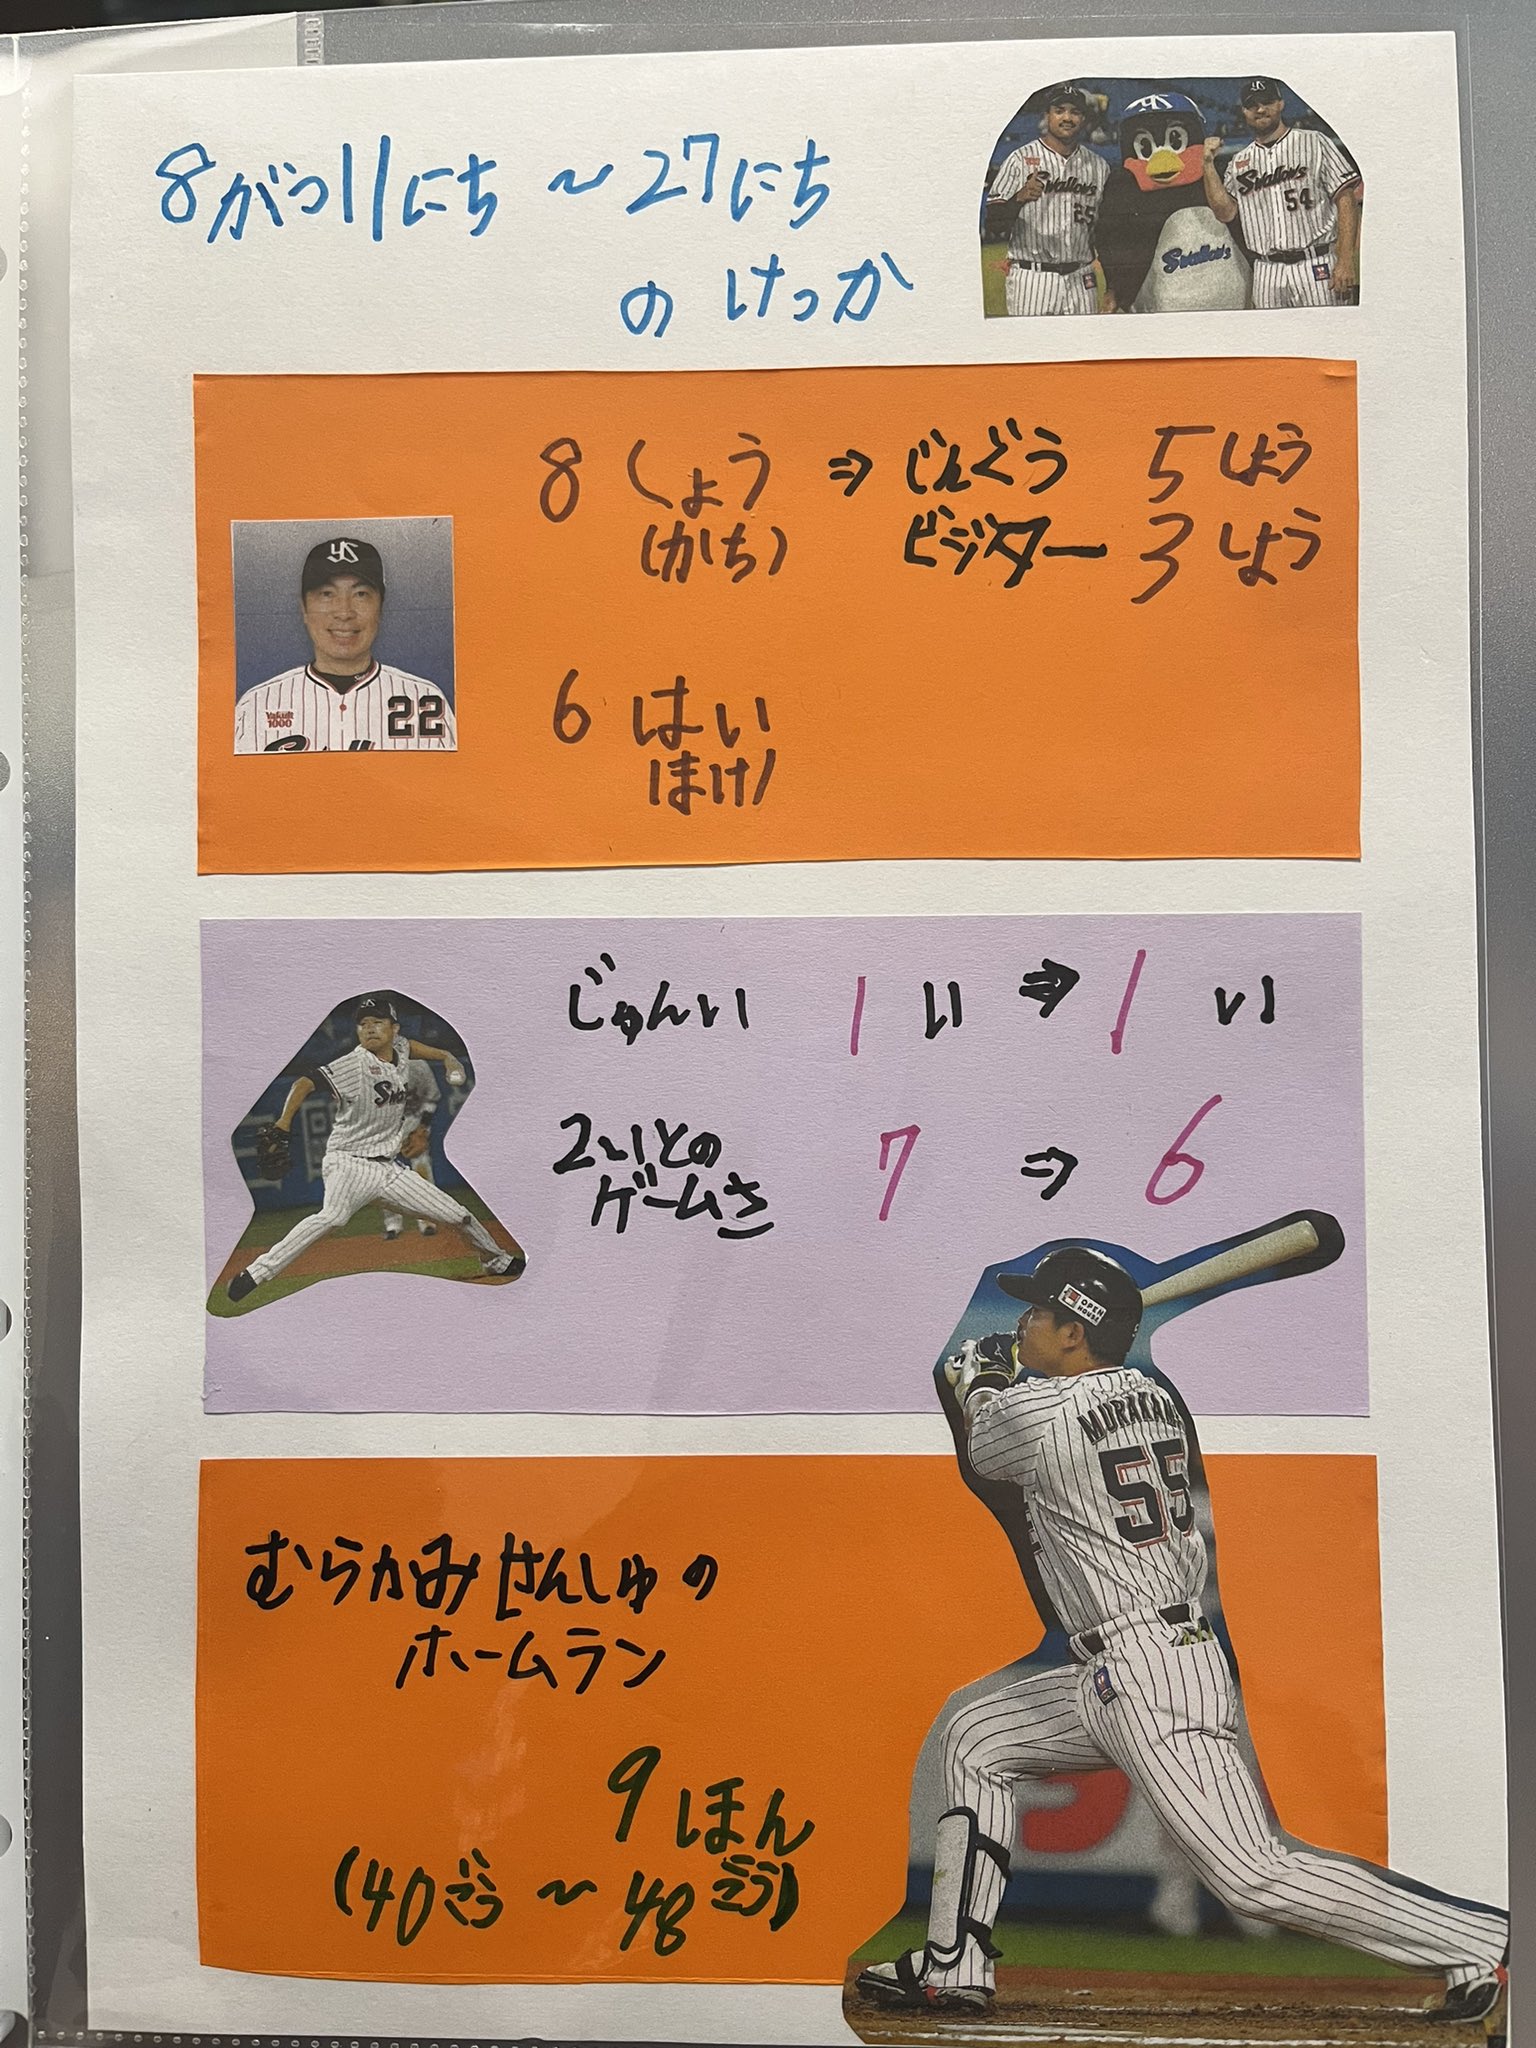 8がつ11にち～27にち
のけっか
Swallows
25
Swallows
54
Swallows
8しょう⇒じんぐう 5しょう
(かち) ビジター 3しょう
22
Yakult
1000
6はい
(まけ)
じゅんい 1い⇒1い
2いとの
ゲームさ 7⇒6
OPEN
HOUSE
MURAKAMI
55
むらかみせんしゅの
ホームラン
9ほん
(40ごう～48ごう)